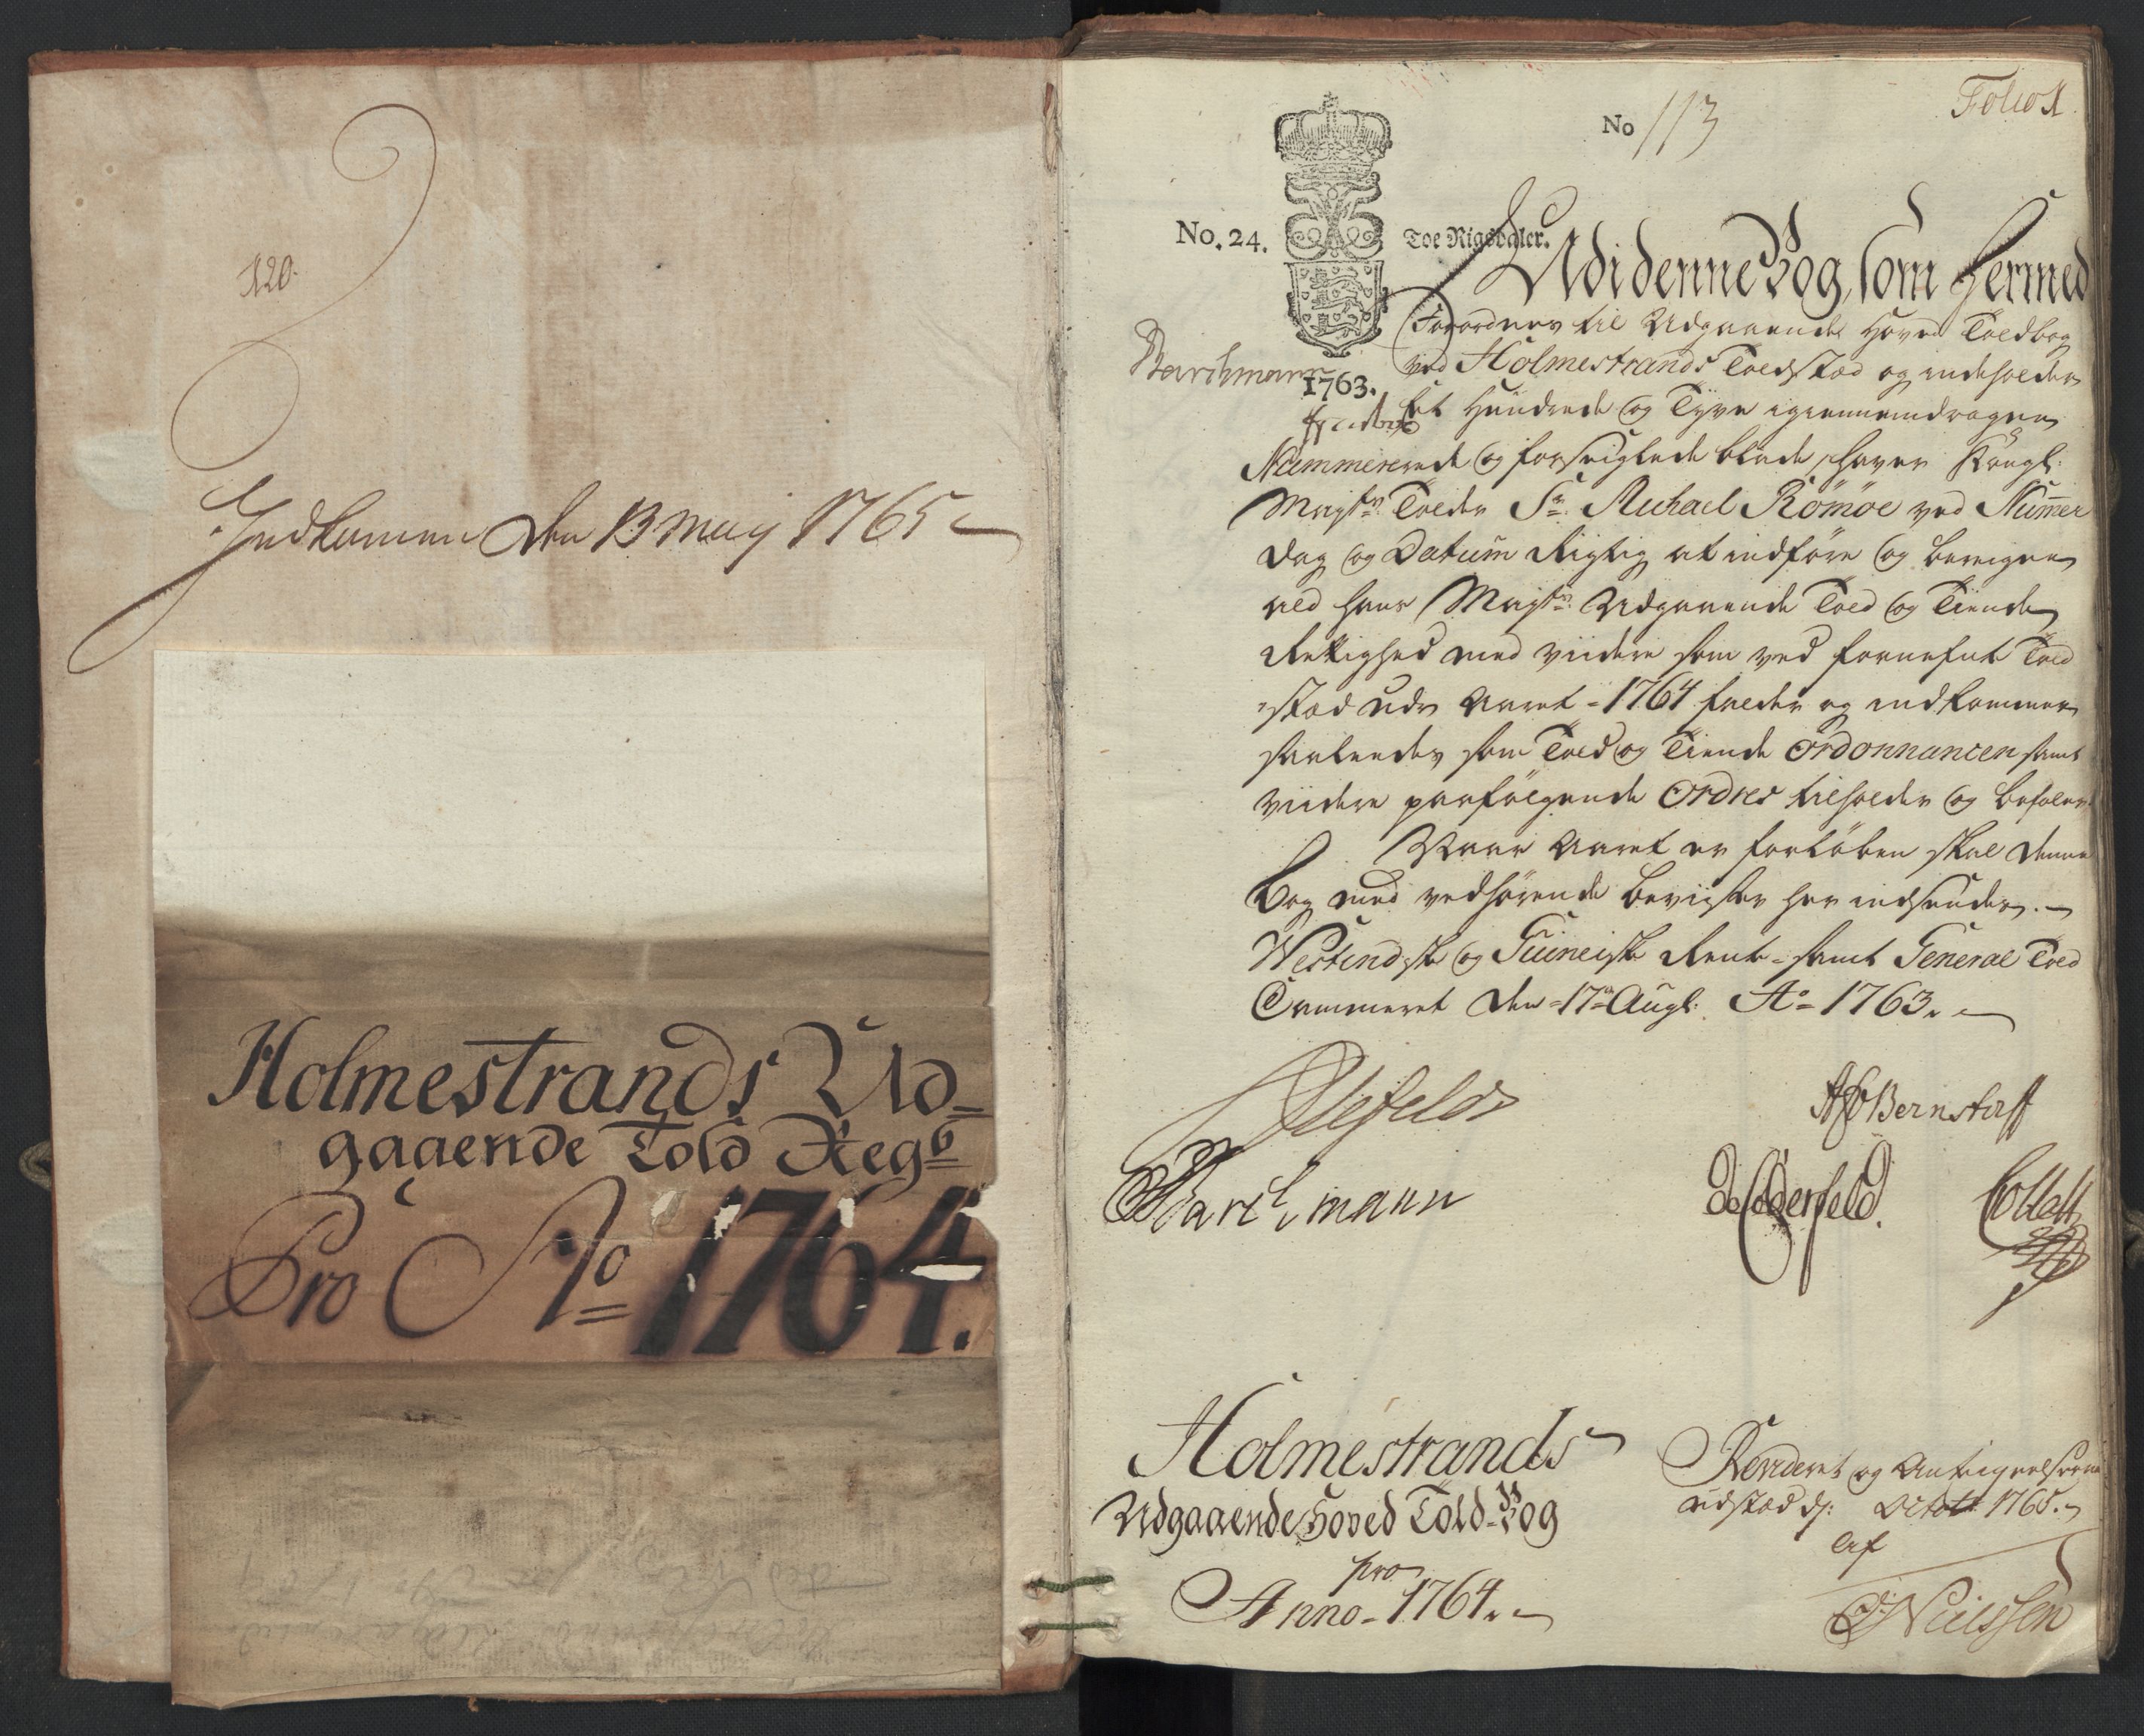 120.
Indkommen den 13 May 1765
Holmestrands Ud=
gaaende Told Regb
Pro Ao 1764.
Folio 1.
No 113
No. 24.
Toe Rigsdaler.
1763.
Barthmann
Udi denne Bog, som hermed
Forordnes til Udgaaende Hoved Toldbog
ved Holmestrands Toldsted og indeholder
Et Hundrede og Tyve igiennemdragne
Nummererede og forseiglede blade, haver Kongl:
Mayts Tolder Sr. Michael Römöe ved Nummer
Dag og Datum Rigtig at indføre og beregne
ald hans Mayts Udgaaende Told og Tiende
Rettighed med viidere som ved fornefnte Told
=sted udi Aaret = 1764 falder og indkommer
saaledes som Told og Tiende Ordonnancen samt
viidere paafølgende Ordres tilholder og befaler
Naar Aaret er forløben skal denne
bog med vedhørende beviister her indsendes. -
Westindiske og Guineiske Rente= samt General Told
Cammeret den =17de Augt: Ao= 1763. -
Ahlefeldt
AP Bernstorff
Barthmann
de Cederfeld.
Collett
Holmestrands
Udgaaende Hoved Told=Bog
pro
Anno = 1764. -
Revideret og Antegnelserne
udstæd d: Octobr: 1765.
Af
Nielssen